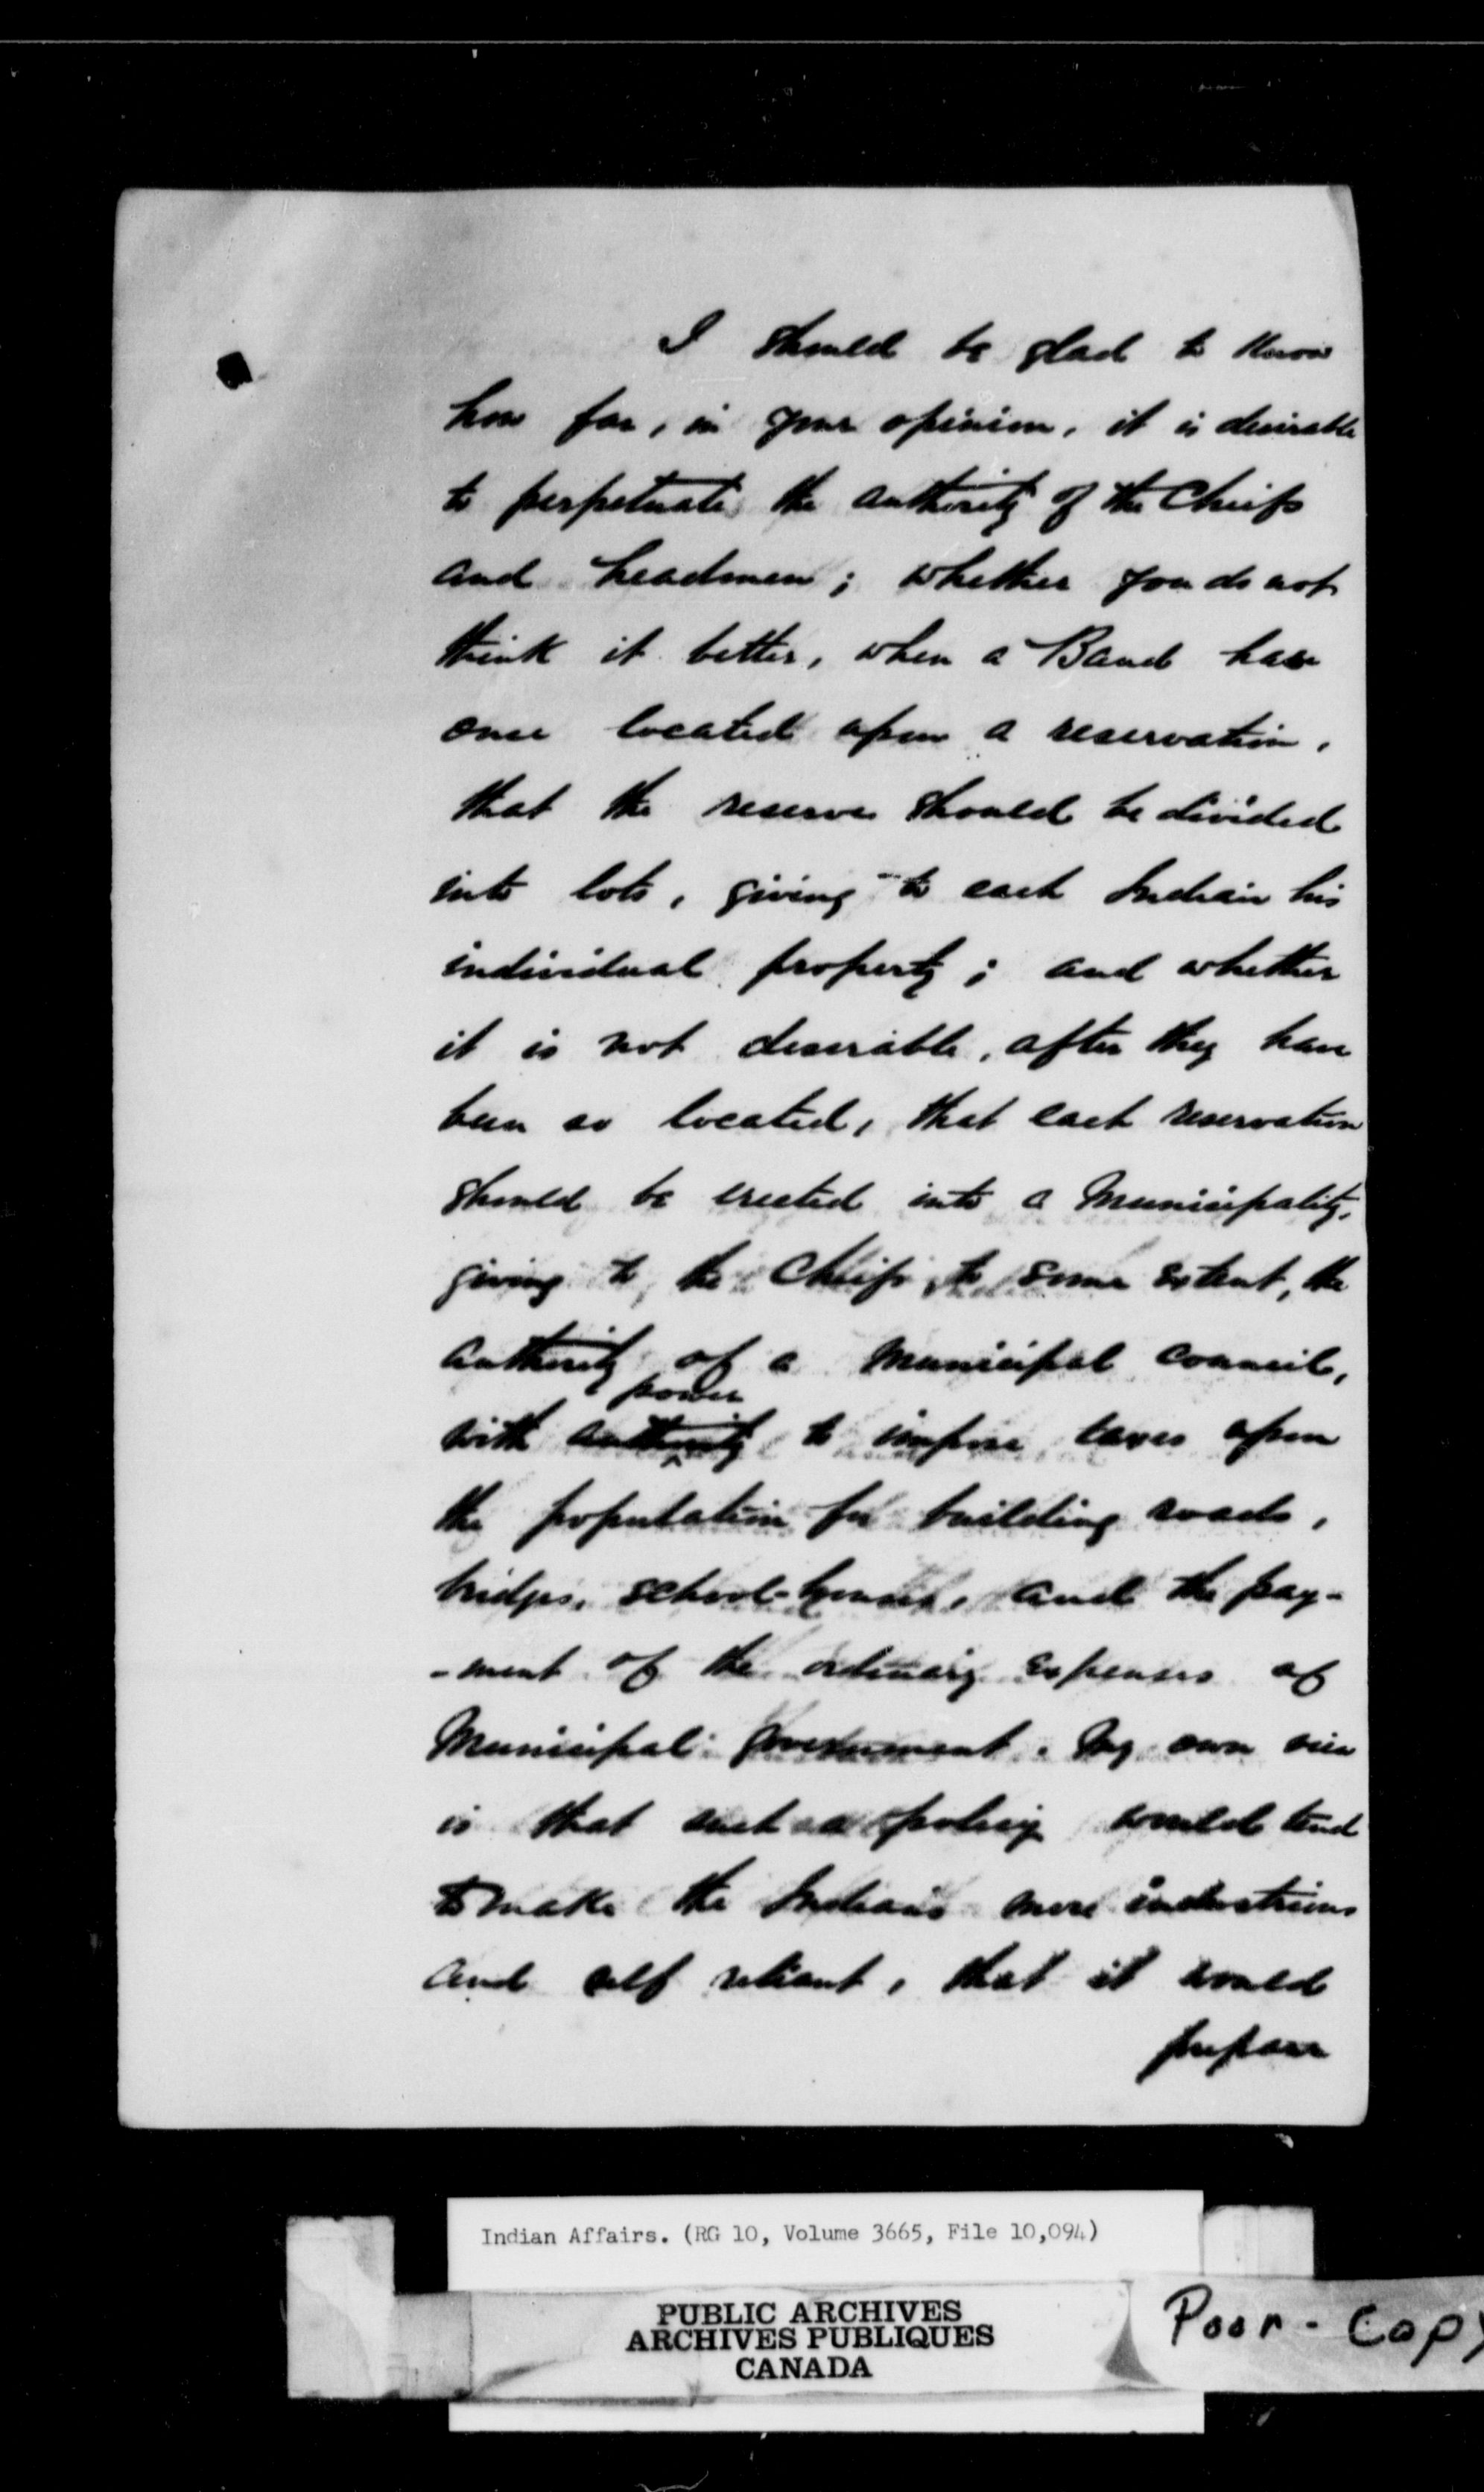 I should be glad to know
how far, in your opinion, it is desirable
to perpetuate the authority of the Chiefs
and headmen; whether you do not
think it better, when a Band have
once located upon a reservation,
that the reserve should be divided
into lots, giving to each Indian his
individual property; and whether
it is not desirable, after they have
been so located, that each reservation
should be erected into a Municipality,
giving to the Chiefs, to some extent, the
authority of a Municipal Council,
power
with authority to impose taxes upon
the population for building roads,
bridges, school-houses, and the pay-
-ment of the ordinary expenses of
Municipal Government. My own view
is that such a policy would tend
to make the Indians more industrious
and self reliant, that it would
prepare
Indian Affairs. (RG 10, Volume 3665, File 10,094)
PUBLIC ARCHIVES
ARCHIVES PUBLIQUES
CANADA
Poor - Copy